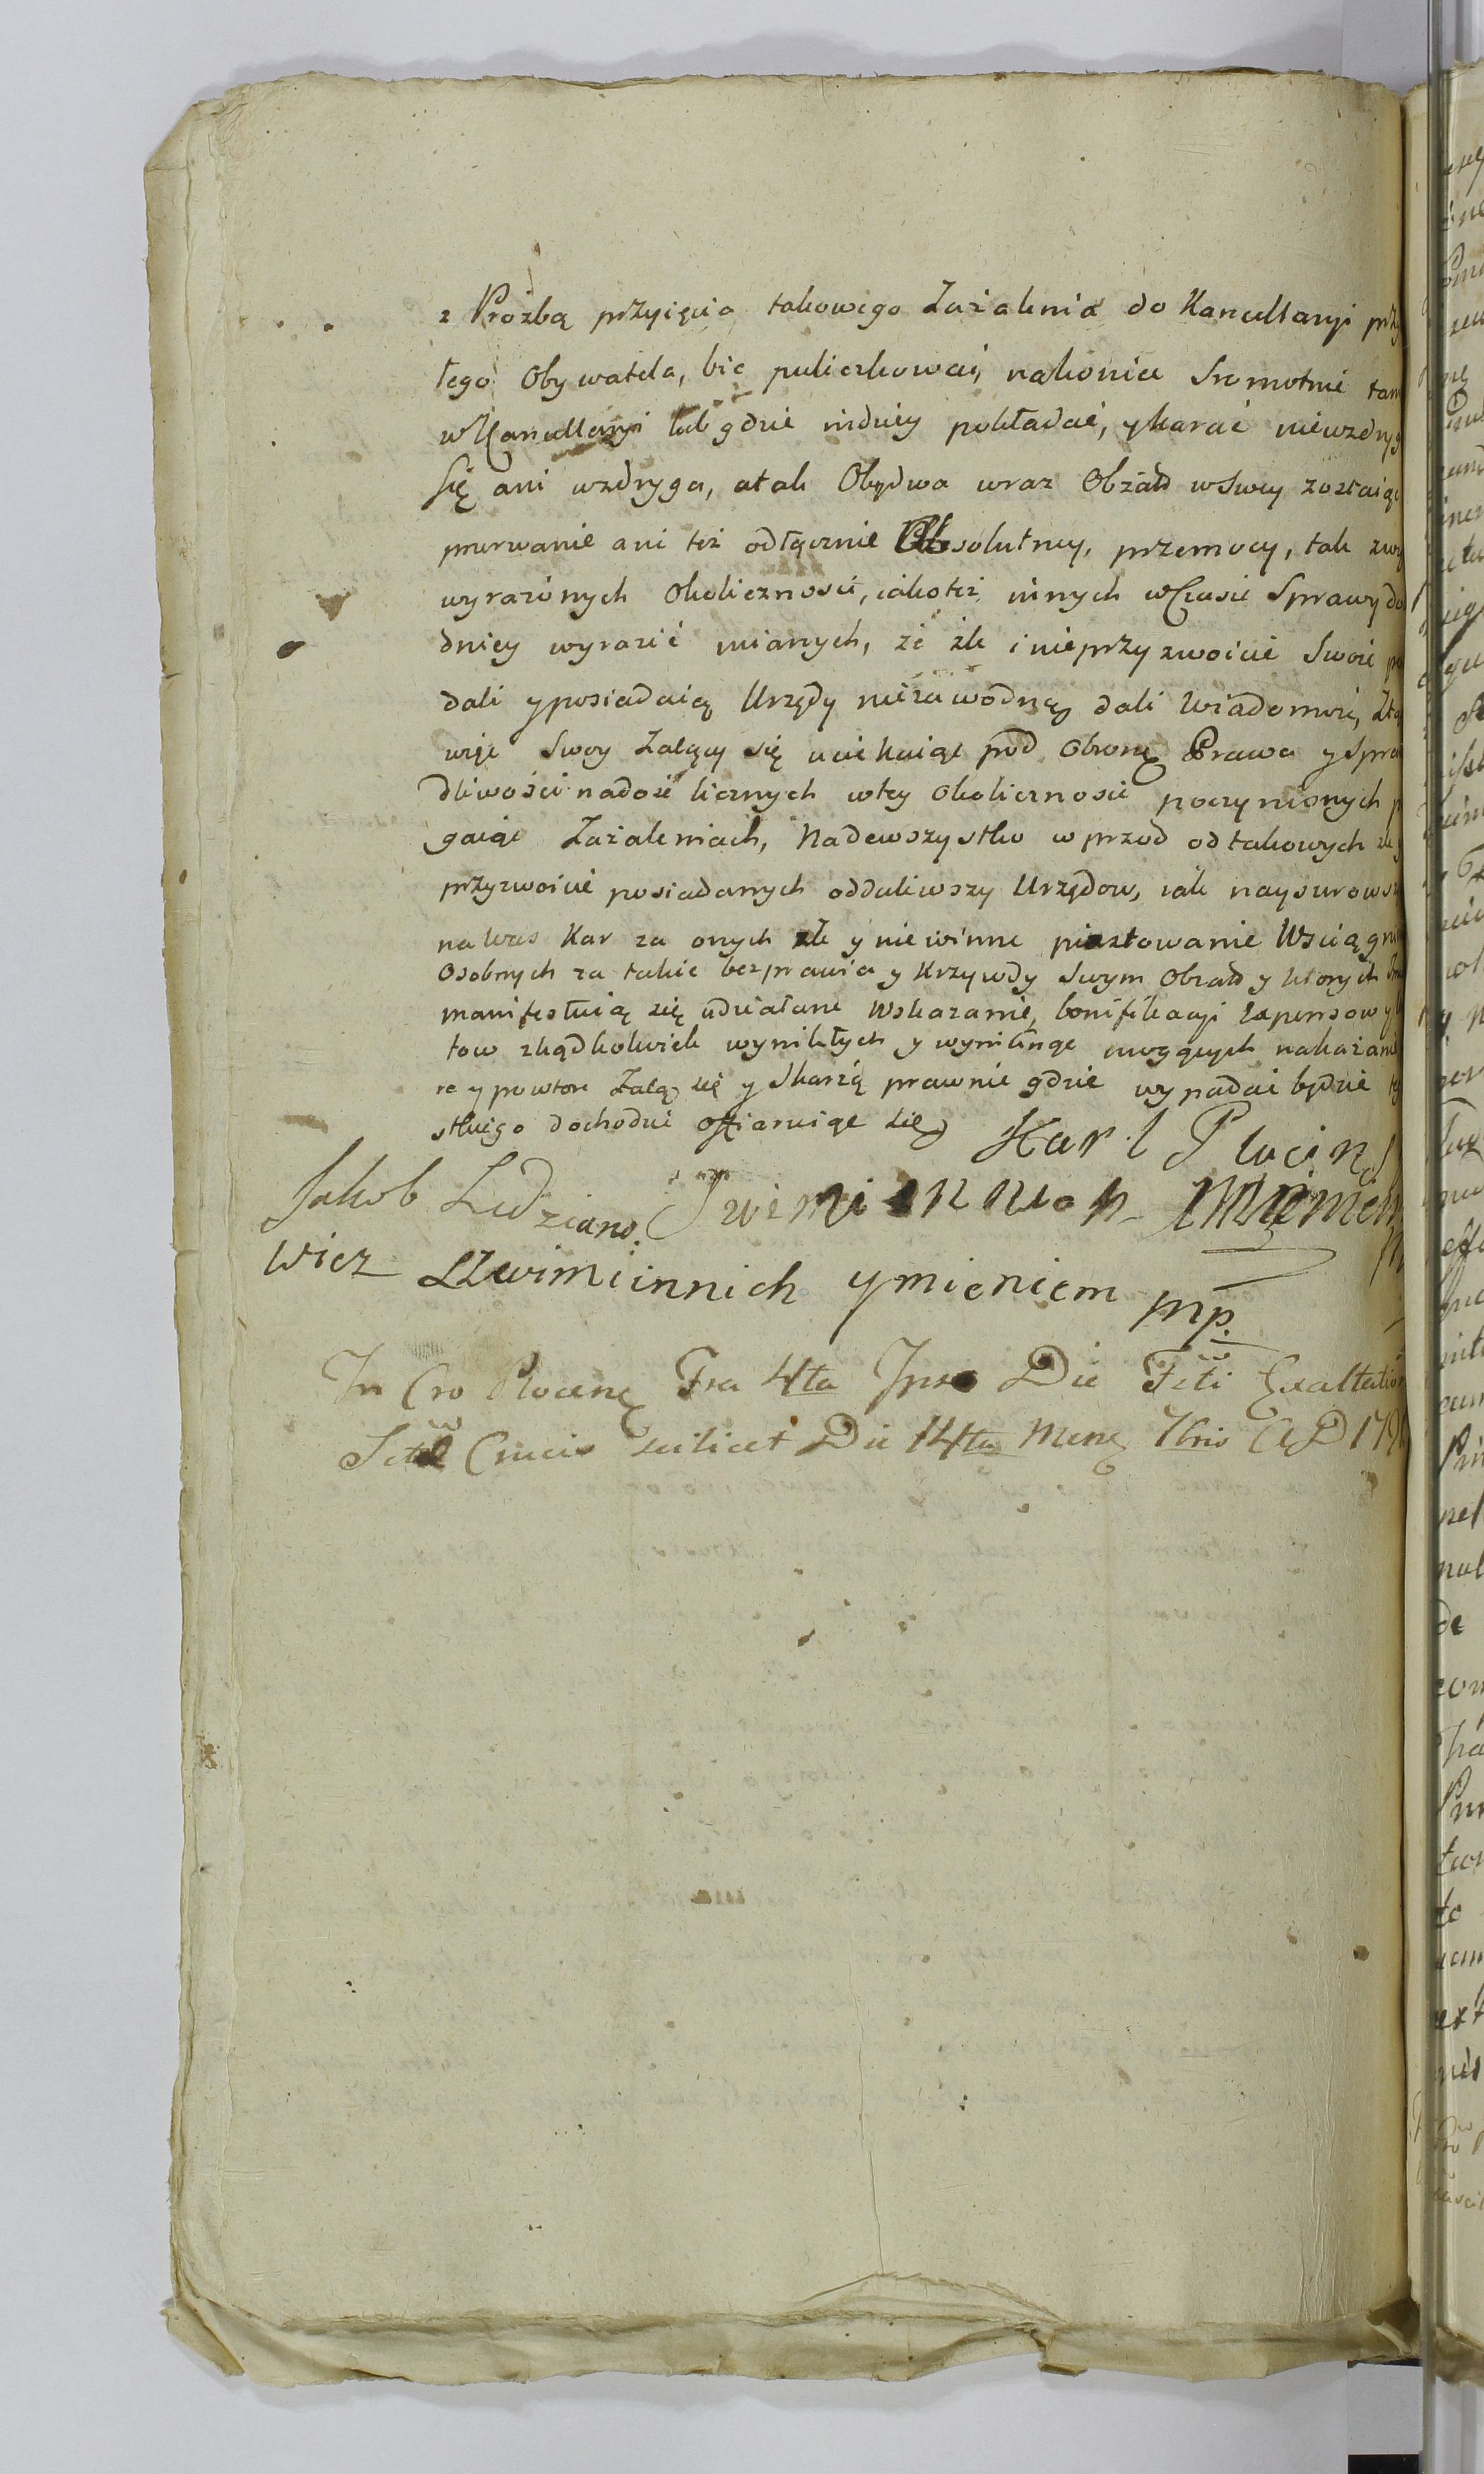 z Prozbą przyięcia takowego Zażalenia do Kancellaryi przy
tego Obywatela, bić puliczkować, nakoniec Sromotnie tam
w Kancellaryi lub gdzie indziey pokładać, y karać niewzdryg
się ani wzdryga, a tak Obydwa wraz Obżało w swey zostaiąc
przerwanie ani też odłącznie Absolutney, przemocy, tak zwy
wyrazonych Okoliczności, iakoteż innych w Czasie Sprawy do
dniey wyrazić mianych, że źle i nieprzyzwoicie Swoie po
dali y posiadaią Urzędy niezawodną dali Wiadomość, Zta
więc Swey Zalący się uciekaiąc pod Obronę Prawa y Spra
dliwości nadość licznych w tey Okoliczności poczynionych p
gaiąc Zażaleniach, Nadewszystko wprzod od takowych
przyzwoicie posiadanych oddaliwszy Urzędow, iak naysurowsz
na Was Kar za onych złe y niewinne piastowanie Wsciągni
Osobnych za takie bezprawia y Krzywdy Swym Obżało y ktorych
manifestuią się udziałane Wskazanie, bonifikacyi Expensow y
tow zkądkolwiek wynikłych y wyniknąć mogących nakazani
re y powtore Zalą się y Skarżą prawnie gdzie wypadać będzie
stkiego dochodzić offiaruiąc się
Karl Plucins
Jakob Ludziano.
Swim i innich
wicz SZwim i innich ymieniem mp.
In Cro Plocen Fra 4ta Ipso Die Festi Exaltation
Sctae Crucis scilicet Die 14ta Mens 7bris AD 179